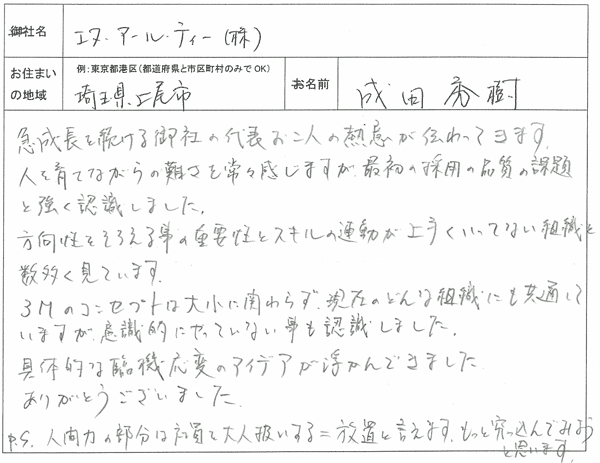 御社名 エヌ・アール・ティー(株)
お住まいの地域 例:東京都港区(都道府県と市区町村のみでOK) 埼玉県上尾市 お名前 成田秀樹
急成長を続ける御社の代表お二人の熱意が伝わってきます。
人を育てながらの難さを常々感じますが、最初の採用の品質の課題
と強く認識しました。
方向性をそろえる事の重要性とスキルの連動が上手くいってない組織を
数多く見ています。
3Mのコンセプトは大小に関わらず、現在のどんな組織にも共通して
いますが、意識的にやっていない事も認識しました。
具体的な臨機応変のアイデアが浮かんできました
ありがとうございました。
P.S. 人間力の部分は社員を大人扱いする=放置と言えます。もっと突っ込んでみよう
と思います。